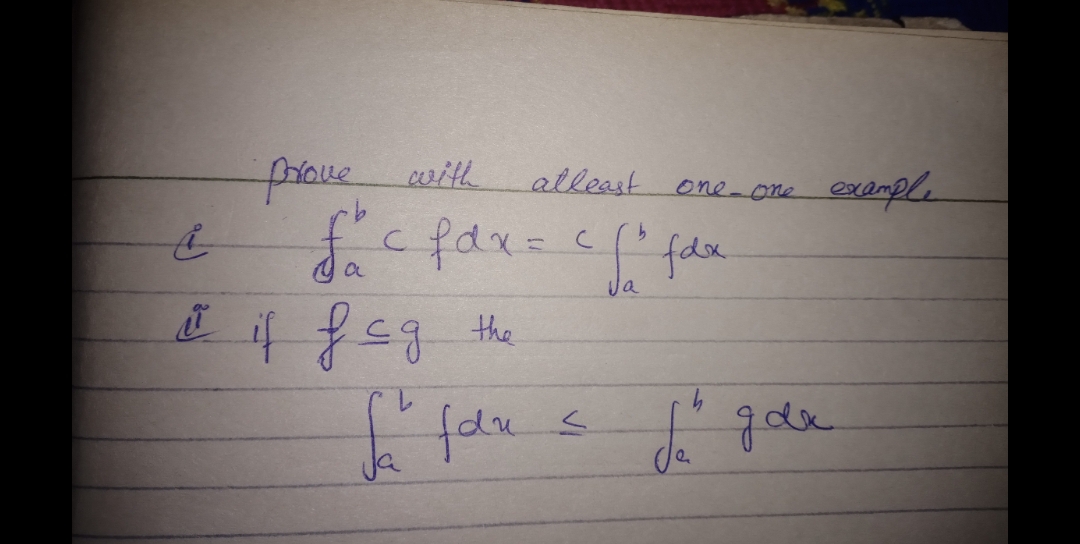 prove with atleast one-one example
i ∫_a^b c f dx = c ∫_a^b f dx
ii if f ≤ g the
∫_a^b f dx ≤ ∫_a^b g dx